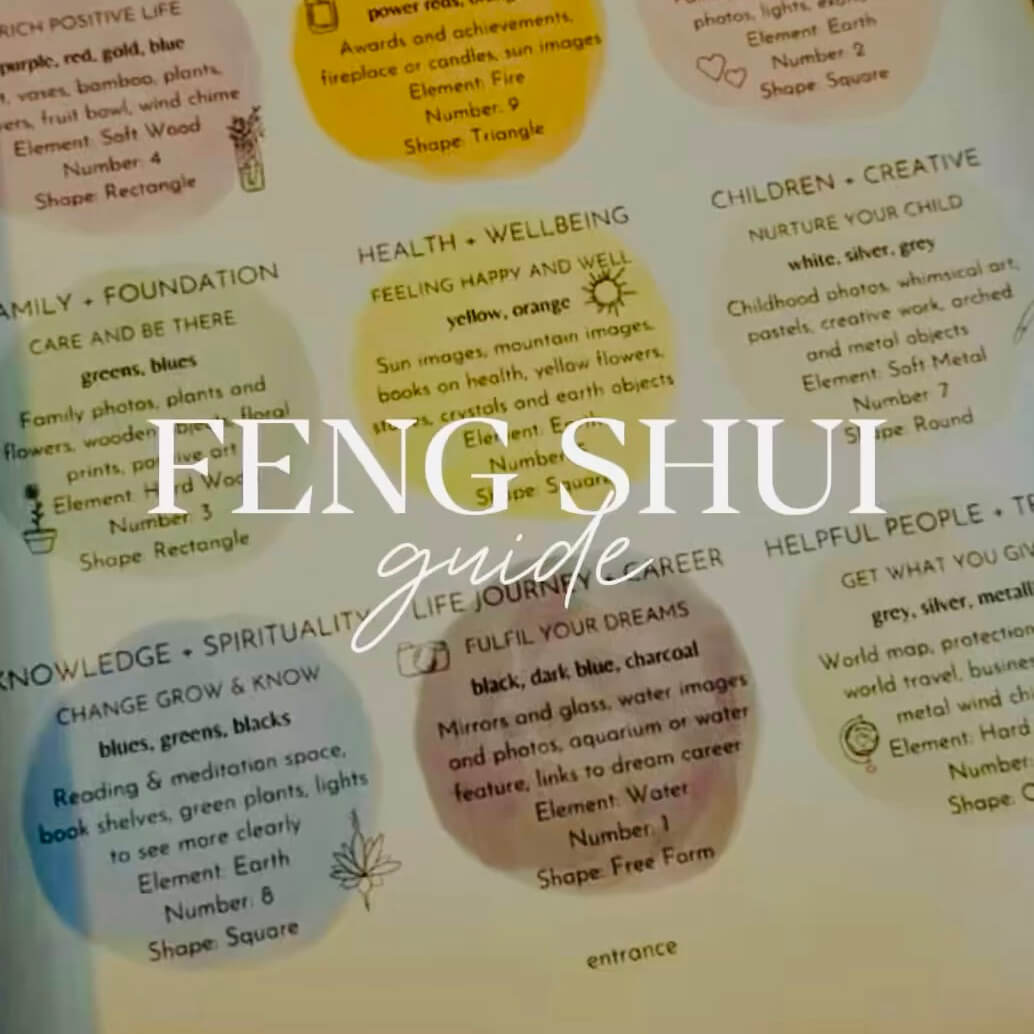 RICH POSITIVE LIFE
purple, red, gold, blue
vases, bamboo, plants,
fruit bowl, wind chime
Element: Soft Wood
Number: 4
Shape: Rectangle
power reds,
Awards and achievements,
fireplace or candles, sun images
Element: Fire
Number: 9
Shape: Triangle
photos, lights,
Element: Earth
Number: 2
Shape: Square
AMILY + FOUNDATION
CARE AND BE THERE
greens, blues
Family photos, plants and
flowers, wooden floral
prints, art
Element:
Number: 3
Shape: Rectangle
HEALTH + WELLBEING
FEELING HAPPY AND WELL
yellow, orange
Sun images, mountain images,
books on health, yellow flowers,
crystals and earth objects
Number
CHILDREN + CREATIVE
NURTURE YOUR CHILD
white, silver, grey
Childhood photos, whimsical art,
pastels, creative work, arched
and metal objects
Element: Soft Metal
Number: 7
Shape: Round
FENG SHUI
guide
KNOWLEDGE + SPIRITUALITY
CHANGE GROW & KNOW
blues, greens, blacks
Reading & meditation space,
book shelves, green plants, lights
to see more clearly
Element: Earth
Number: 8
Shape: Square
LIFE JOURNEY + CAREER
FULFIL YOUR DREAMS
black, dark blue, charcoal
Mirrors and glass, water images
and photos, aquarium or water
feature, links to dream career
Element: Water
Number: 1
Shape: Free Form
HELPFUL PEOPLE +
GET WHAT YOU
grey, silver,
World map, protection
world travel,
metal wind
Element: Hard
Number:
Shape:
entrance